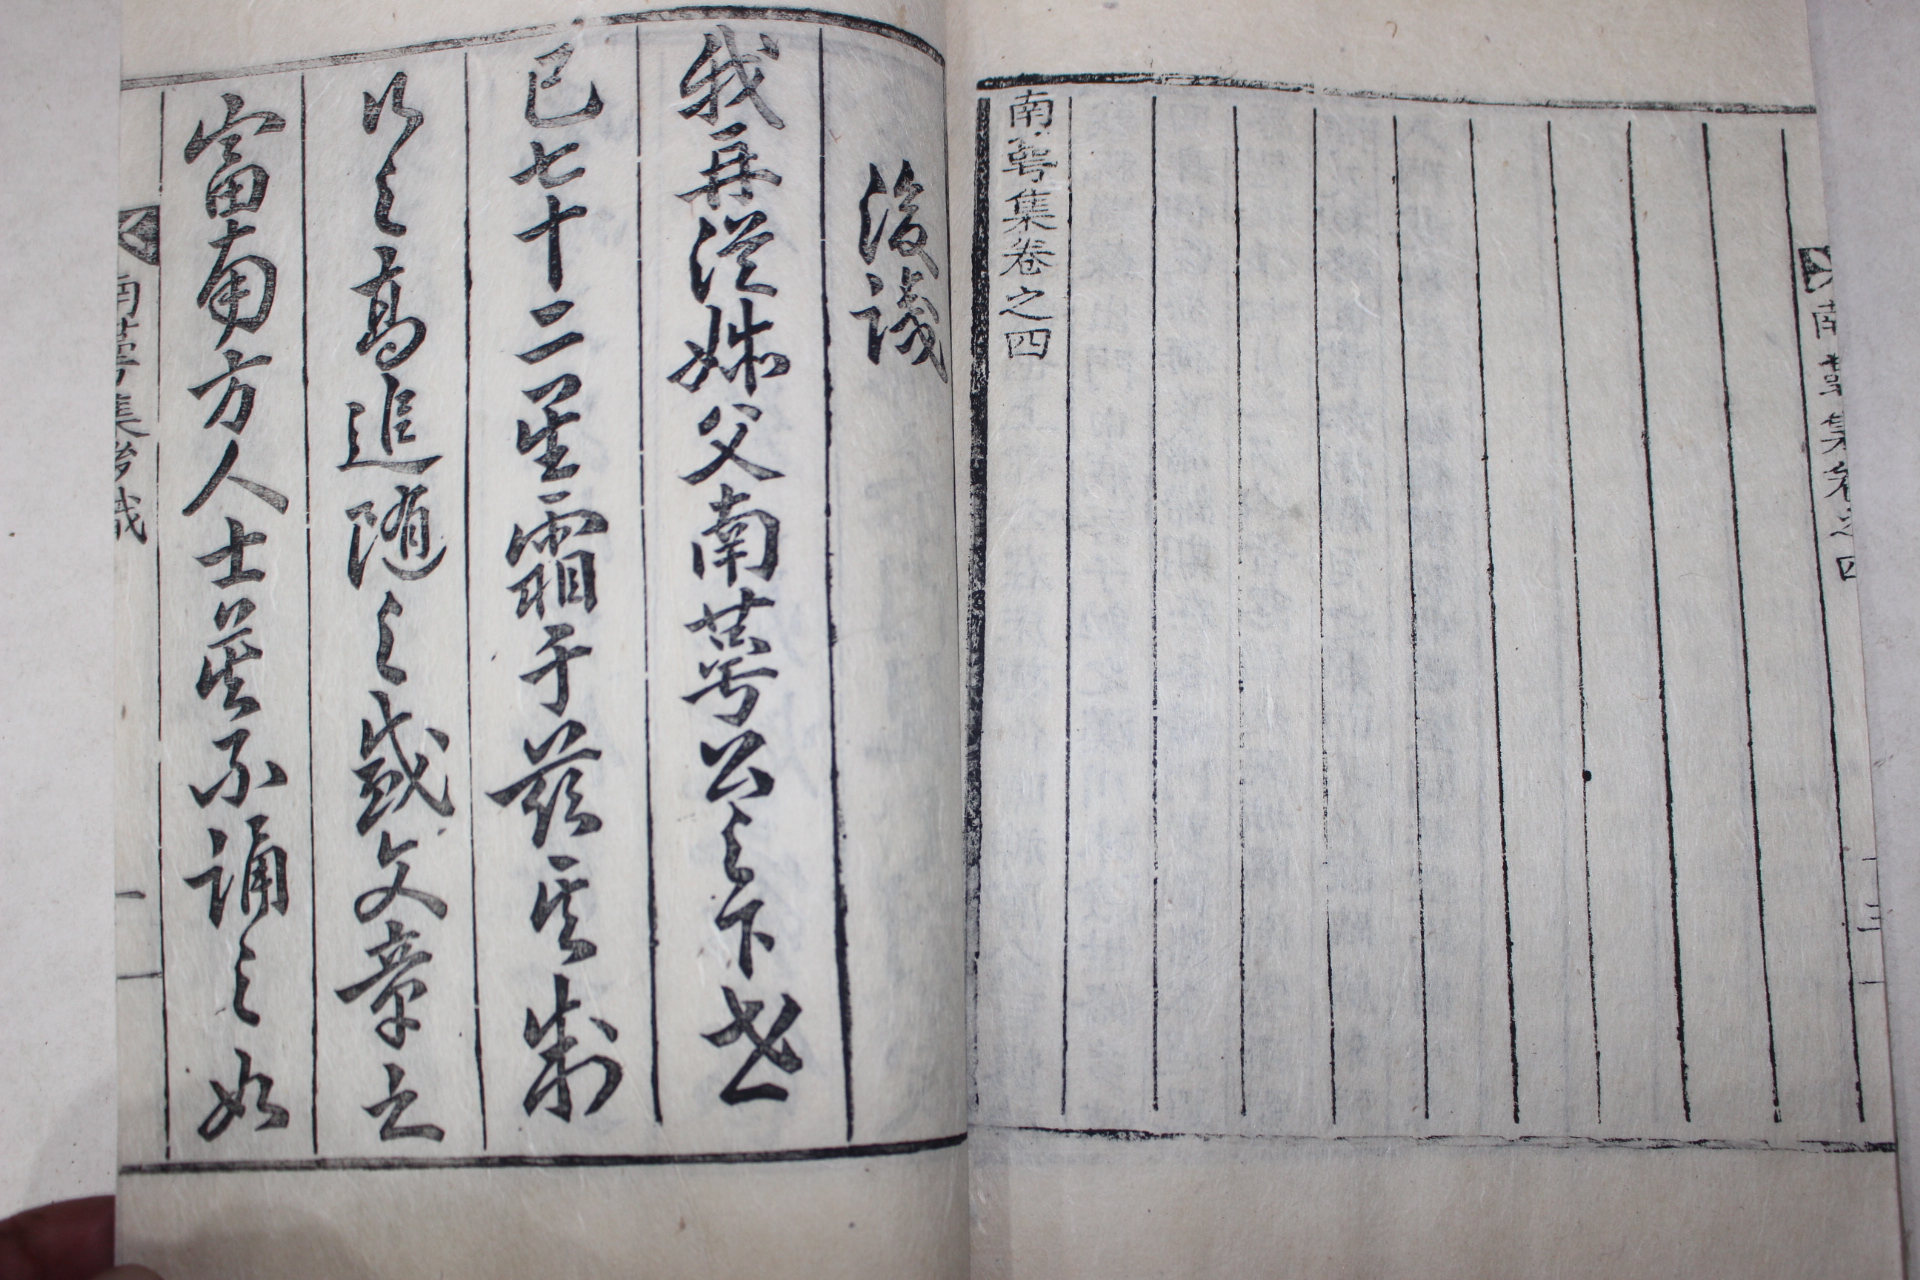 南萼集卷之四
南萼集卷之四
後識
我再從姊父南萼公之下世
已七十二星霜于玆其制
行之高追隨之盛文章之
富南方人士莫不誦之如
南萼集後識 一